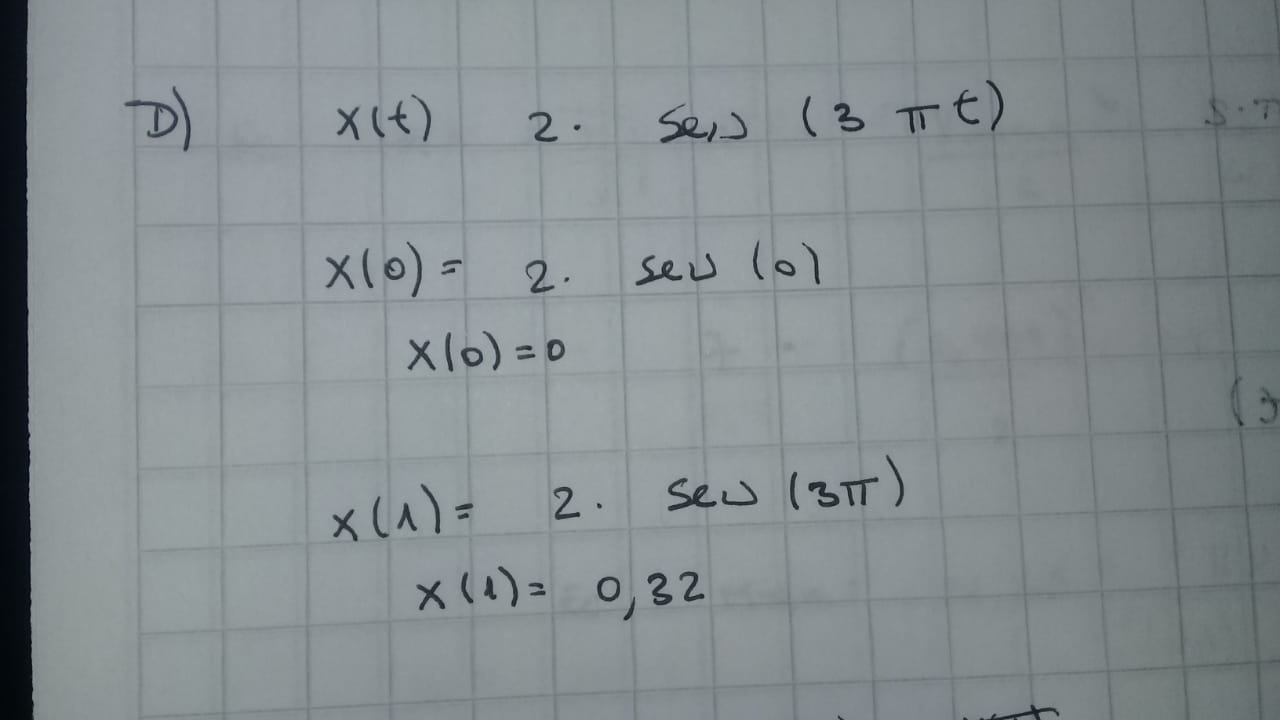 D) x(t) 2. sen (3 π t)
x(0) = 2. sen (0)
x(0) = 0
x(1) = 2. sen (3π)
x(1) = 0,32